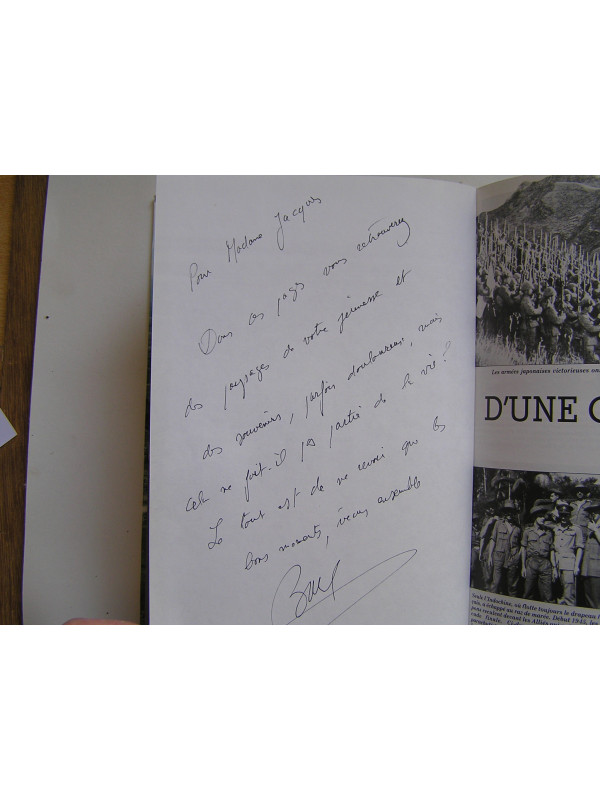 Pour Madame Jacques
Dans ces pages vous retrouverez
des paysages de votre jeunesse et
des souvenirs, parfois douloureux, mais
cela ne fait-il pas partie de la vie ?
Le tout est de ne revoir que les
bons moments, vécus ensemble
Les armées japonaises victorieuses on
D'UNE G
Seule l'Indochine, où flotte toujours le drapeau f
a échappé au raz de marée. Début 1945, les